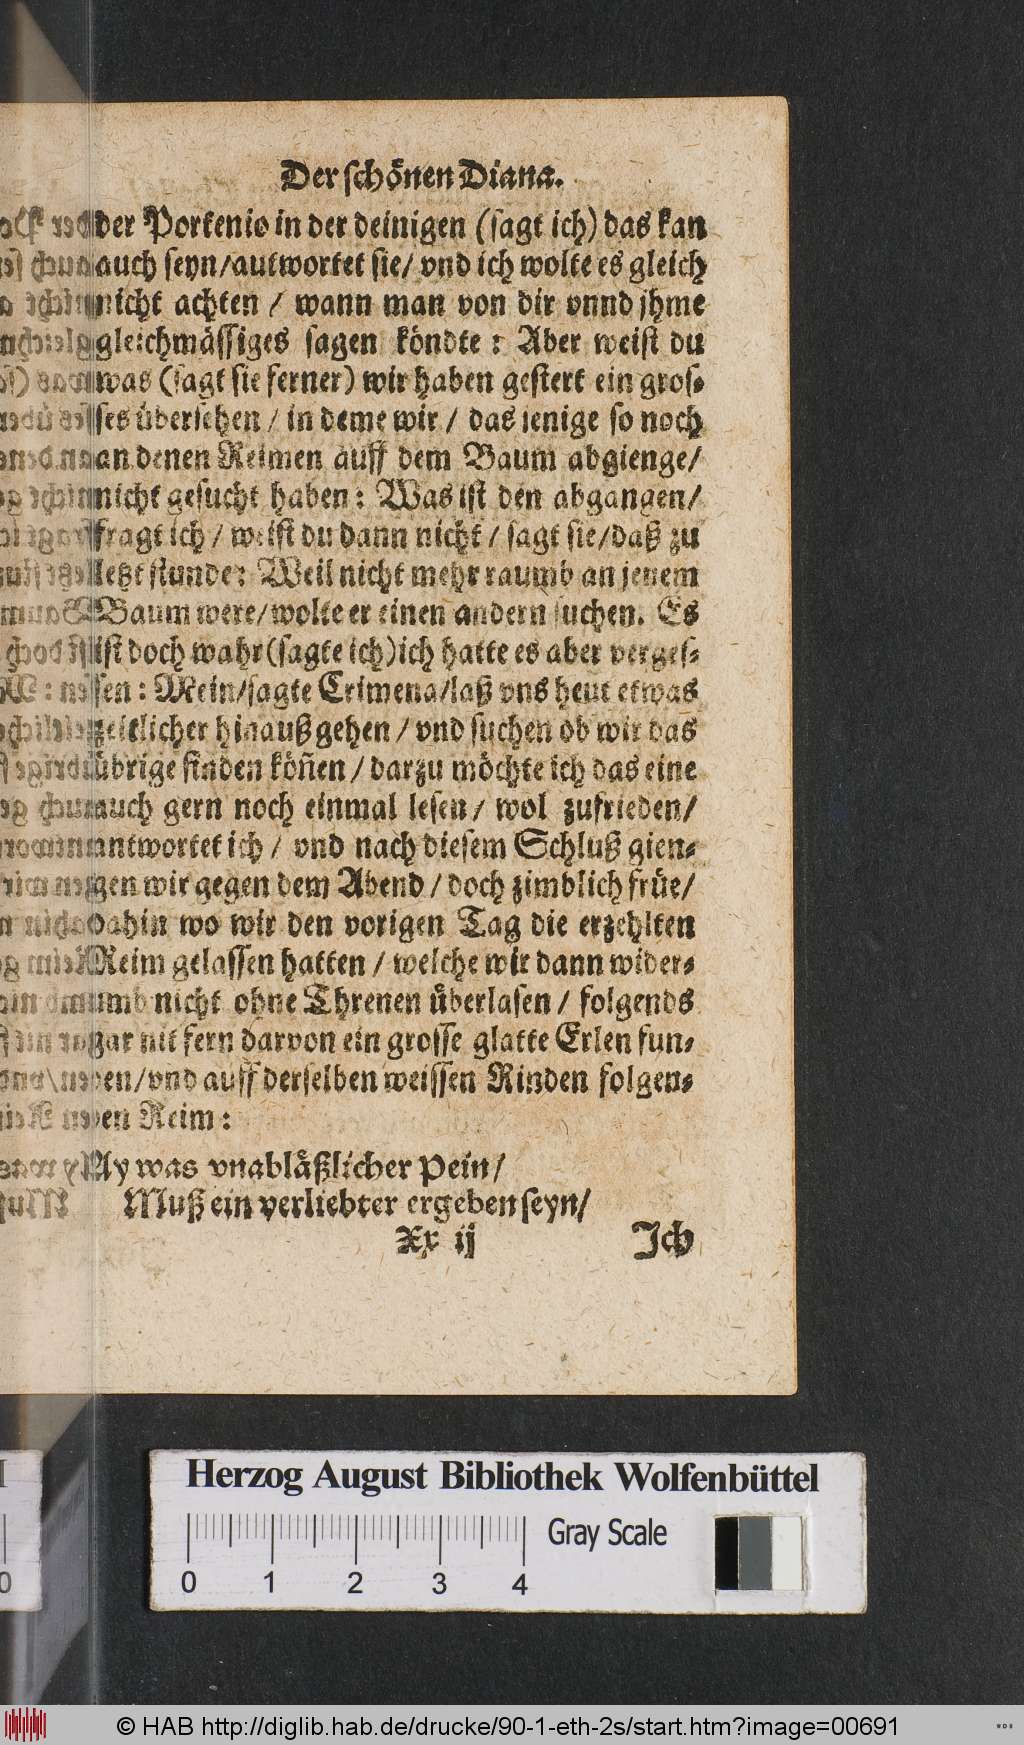 Der schönen Diana.
der Portenio in der deinigen (sagt ich) das kan
auch seyn/autwortet sie/ vnd ich wolte es gleich
nicht achten / wann man von dir vnnd jhme
gleichmässiges sagen köndte: Aber weist du
was (sagt sie ferner) wir haben gestert ein gros-
ses übersehen / in deme wir / das jenige so noch
an denen Reimen auff dem Baum abgienge/
nicht gesucht haben: Was ist den abgangen/
fragt ich / weist du dann nicht / sagt sie/daß zu
letzt stunde: Weil nicht mehr raumb an jenem
Baum were/wolte er einen andern suchen. Es
ist doch wahr(sagte ich)ich hatte es aber verges-
sen: Mein/sagte Crimena/laß vns heut etwas
zeitlicher hinauß gehen / vnd suchen ob wir das
übrige finden köñen / darzu möchte ich das eine
auch gern noch einmal lesen/ wol zufrieden/
antwortet ich / vnd nach diesem Schluß gien-
gen wir gegen dem Abend / doch zimblich früe/
dahin wo wir den vorigen Tag die erzehlten
Reim gelassen hatten / welche wir dann wider-
umb nicht ohne Threnen überlasen / folgends
gar nit fern darvon ein grosse glatte Erlen fun-
den/vnd auff derselben weissen Rinden folgen-
den Reim:
Ay was vnabläßlicher Pein/
Muß ein verliebter ergeben seyn/
Xx ij Ich
Herzog August Bibliothek Wolfenbüttel
Gray Scale
0 1 2 3 4
© HAB http://diglib.hab.de/drucke/90-1-eth-2s/start.htm?image=00691